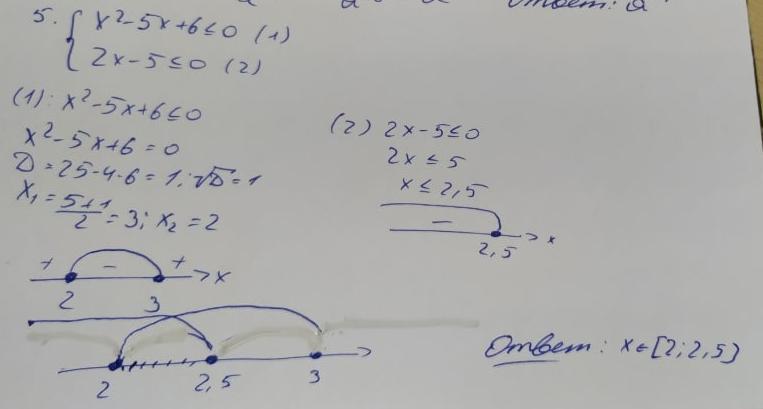 5. { x²-5x+6≤0 (1)
2x-5≤0 (2)
(1): x²-5x+6≤0
x²-5x+6=0
D=25-4·6=1; √D=1
x₁=(5+1)/2=3; x₂=2
+ - + x
2 3
(2) 2x-5≤0
2x≤5
x≤2,5
- x
2,5
2 2,5 3
Ответ: x∈[2;2,5]